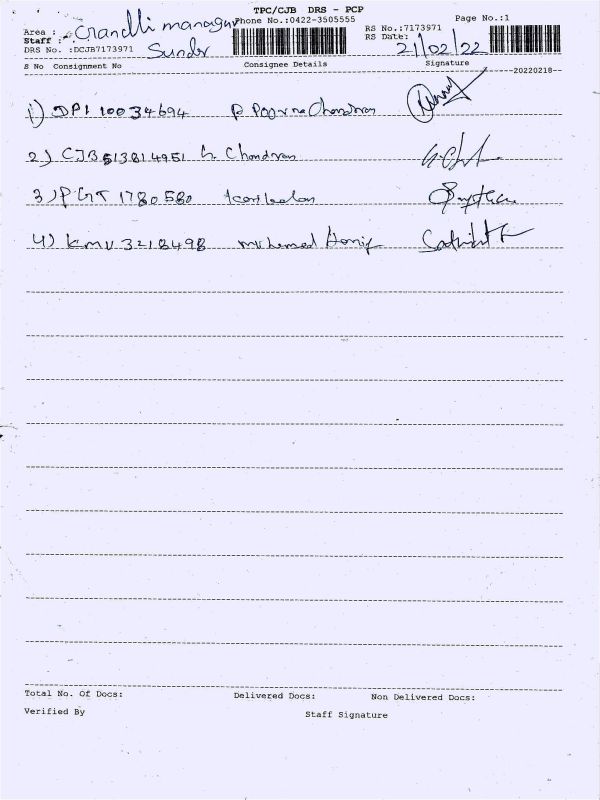 TPC/CJB DRS - PCP
Area : Gandhi managar Phone No.:0422-3505555 Page No.:1
Staff : Sundr RS No.:7173971
DRS No. :DCJB7173971 RS Date: 21/02/22
S No Consignment No Consignee Details Signature
--20220218--
1) DPI 10034694 P Poorna Chandran
2) CJB 513814951 G. Chandran
3) PGT 1780580
4) KMU 3218498 Mohemed Hanif
Total No. Of Docs: Delivered Docs: Non Delivered Docs:
Verified By Staff Signature